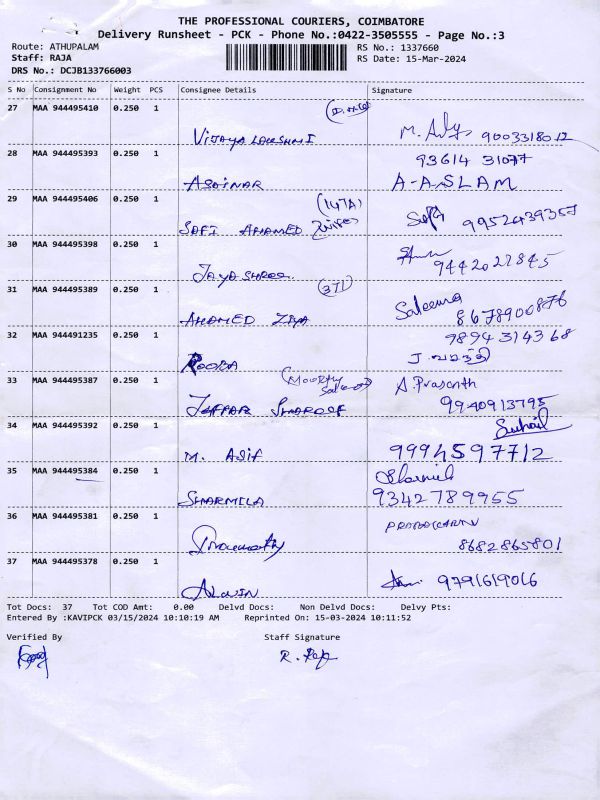 THE PROFESSIONAL COURIERS, COIMBATORE
Delivery Runsheet - PCK - Phone No.:0422-3505555 - Page No.:3
Route: ATHUPALAM
RS No.: 1337660
Staff: RAJA
RS Date: 15-Mar-2024
DRS No.: DCJB133766003
S No Consignment No Weight PCS Consignee Details Signature
27 MAA 944495410 0.250 1
VIJAYA LAKSHMI 9003318012
28 MAA 944495393 0.250 1 93614 31077
ASAINAR A-ASLAM
29 MAA 944495406 0.250 1 (147A)
SAFI AHAMED 9952439357
30 MAA 944495398 0.250 1
JAYASHREE 9442022845
31 MAA 944495389 0.250 1 (371) Saleema
AHAMED ZIYA 8678900876
32 MAA 944491235 0.250 1 9894314368
ROOBA
33 MAA 944495387 0.250 1 (Moorthy A. Prasanth
JAFFAR SHAREEF 9940913795
34 MAA 944495392 0.250 1 Suhail
M. ASIF 9994597712
35 MAA 944495384 0.250 1
SHARMILA 9342789955
36 MAA 944495381 0.250 1
8682865801
37 MAA 944495378 0.250 1
ALWIN 9791619016
Tot Docs: 37 Tot COD Amt: 0.00 Delvd Docs: Non Delvd Docs: Delvy Pts:
Entered By :KAVIPCK 03/15/2024 10:10:19 AM Reprinted On: 15-03-2024 10:11:52
Verified By Staff Signature
R. Raja